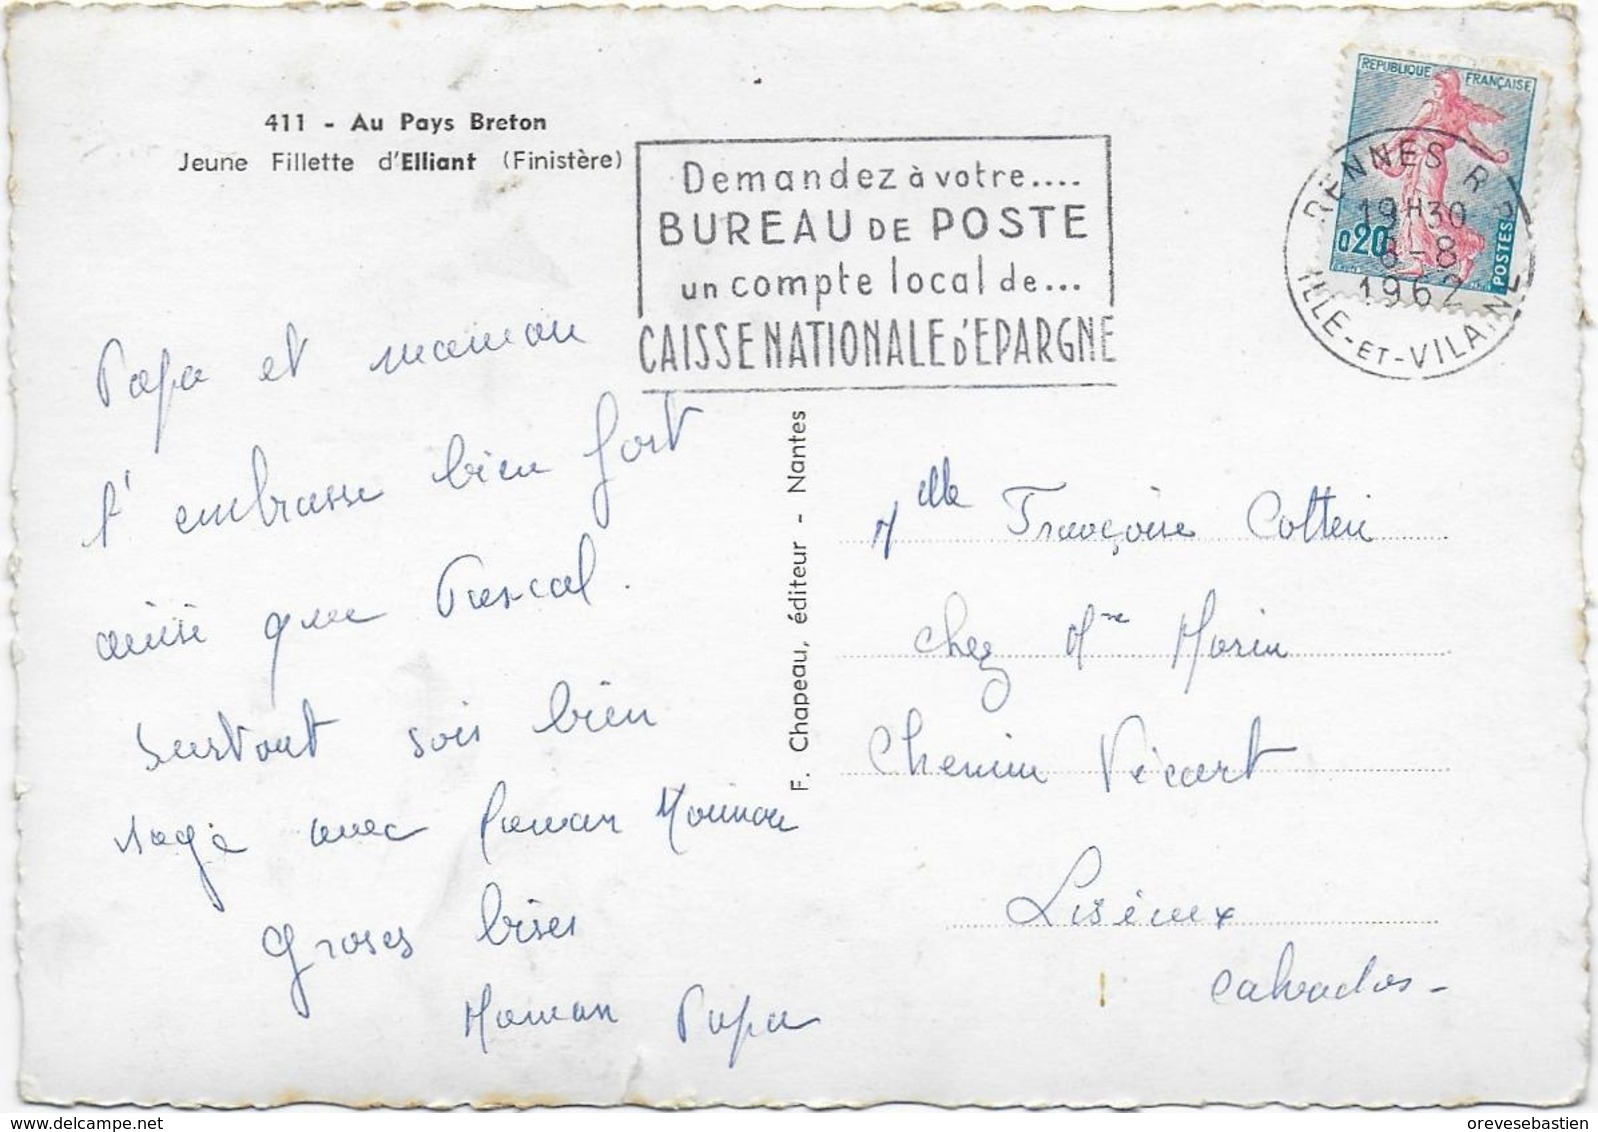 411 - Au Pays Breton
Jeune Fillette d'Elliant (Finistère)
Demandez à votre....
BUREAU DE POSTE
un compte local de...
CAISSE NATIONALE D'EPARGNE
REPUBLIQUE FRANÇAISE
0,20
POSTES
RENNES R.P.
19H30
8-8
1962
ILLE-ET-VILAINE
Papa et maman
t'embrasse bien fort
ainsi que Pascal.
Surtout sois bien
sage avec Maman
Groses bises
Maman Papa
F. Chapeau, éditeur - Nantes
Mlle Françoise Cottin
chez Mme Morin
Chemin Vicart
Lisieux
Calvados-
delcampe.net
orevesebastien